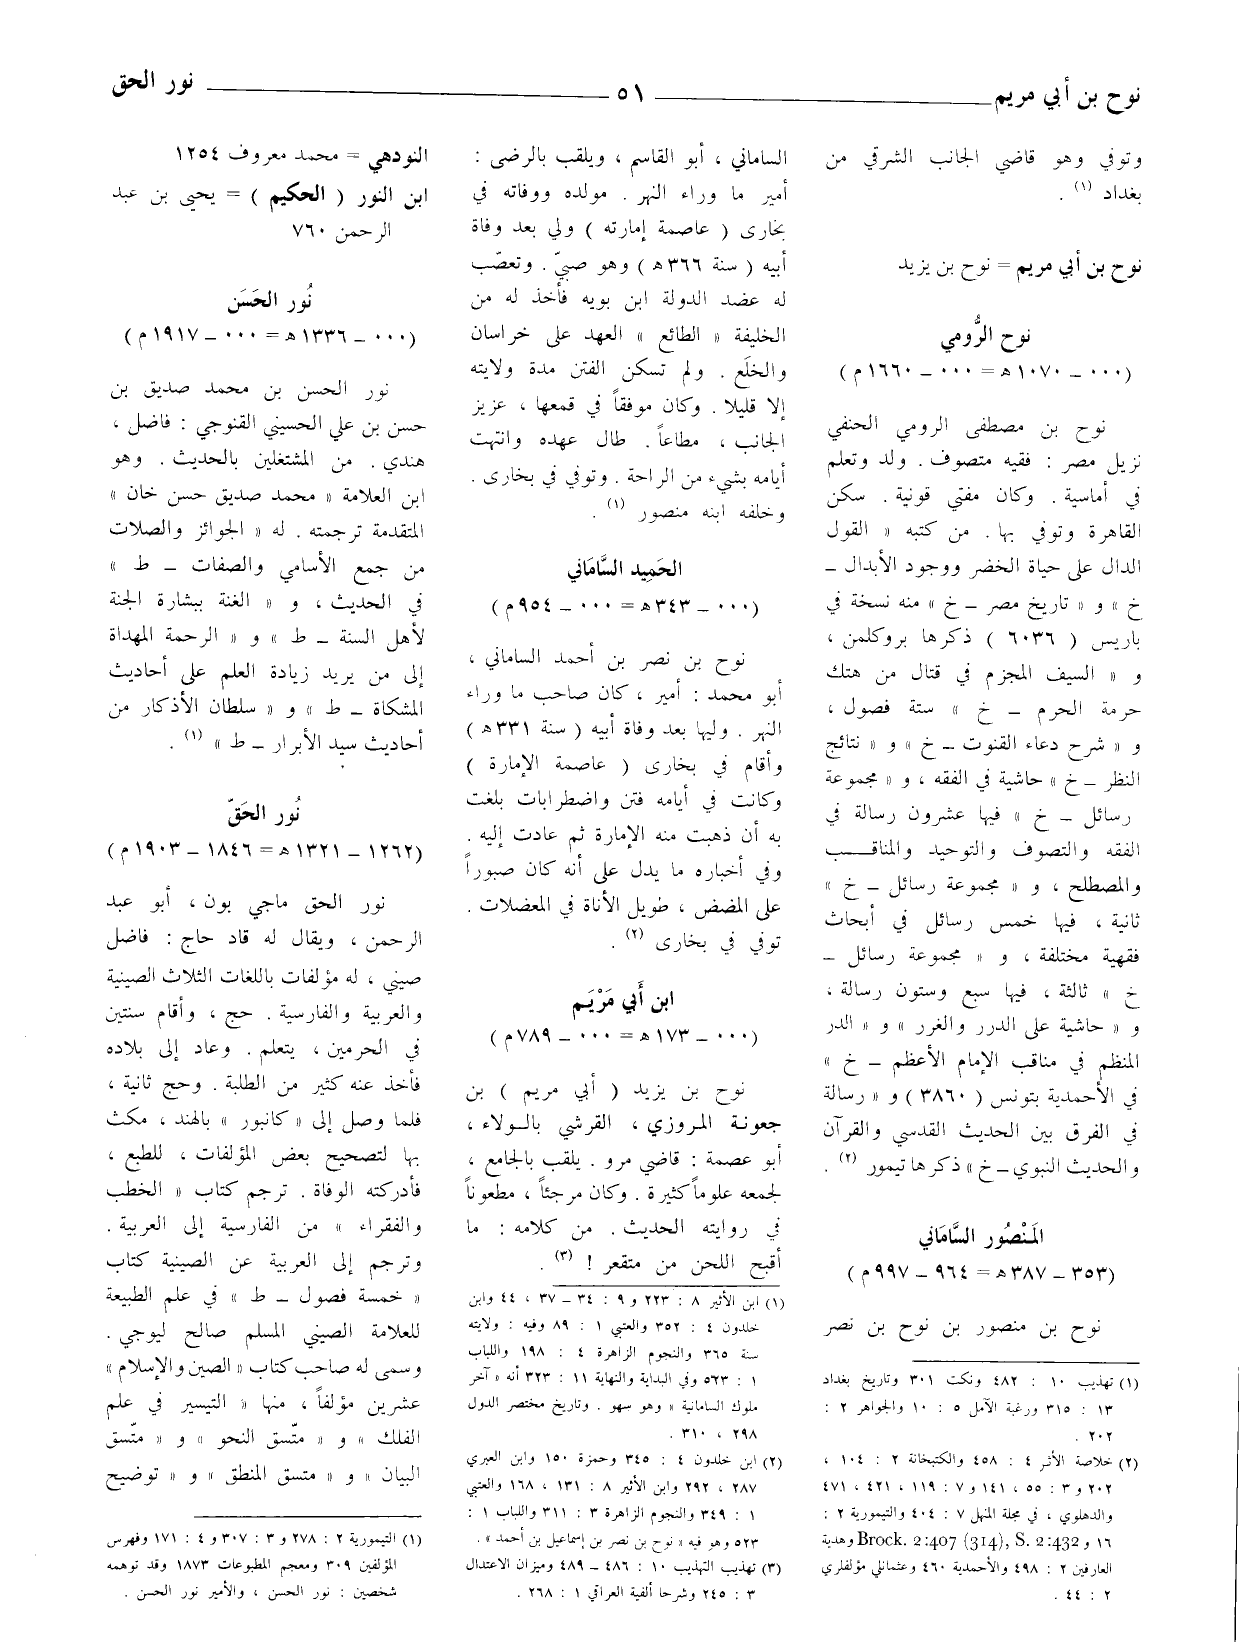 نوح بن أبي مريم ــــ ٥١ ــــ نور الحق
وتوفي وهو قاضي الجانب الشرقي من
بغداد (١) .
نوح بن أبي مريم = نوح بن يزيد
نوح الرُّومي
(٠٠٠ ــ ١٠٧٠ ه = ٠٠٠ ــ ١٦٦٠ م )
نوح بن مصطفى الرومي الحنفي
نزيل مصر : فقيه متصوف . ولد وتعلم
في أماسية . وكان مفتي قونية . سكن
القاهرة وتوفي بها . من كتبه « القول
الدال على حياة الخضر ووجود الأبدال ــ
خ » و « تاريخ مصر ــ خ » منه نسخة في
باريس ( ٦٠٣٦ ) ذكرها بروكلمن ،
و « السيف المجزم في قتال من هتك
حرمة الحرم ــ خ » ستة فصول ،
و « شرح دعاء القنوت ــ خ » و « نتائج
النظر ــ خ » حاشية في الفقه ، و « مجموعة
رسائل ــ خ » فيها عشرون رسالة في
الفقه والتصوف والتوحيد والمناقب
والمصطلح ، و « مجموعة رسائل ــ خ »
ثانية ، فيها خمس رسائل في أبحاث
فقهية مختلفة ، و « مجموعة رسائل ــ
خ » ثالثة ، فيها سبع وستون رسالة ،
و « حاشية على الدرر والغرر » و « الدر
المنظم في مناقب الإمام الأعظم ــ خ »
في الأحمدية بتونس ( ٣٨٦٠ ) و « رسالة
في الفرق بين الحديث القدسي والقرآن
والحديث النبوي ــ خ » ذكرها تيمور (٢) .
المَنْصُور السَّامَاني
(٣٥٣ ــ ٣٨٧ ه = ٩٦٤ ــ ٩٩٧ م )
نوح بن منصور بن نوح بن نصر
(١) تهذيب ١٠ : ٤٨٢ ونكت ٣٠١ وتاريخ بغداد
١٣ : ٣١٥ ورغبة الآمل ٥ : ١٠ والجواهر ٢ :
٢٠٢ .
(٢) خلاصة الأثر ٤ : ٤٥٨ والكتبخانة ٢ : ١٠٤ ،
٢٠٢ و ٣ : ٥٥ ، ١٤١ و ٧ : ١١٩ ، ٤٢١ ، ٤٧١
والدهلوي ، في مجلة المنهل ٧ : ٤٠٤ والتيمورية ٢ :
١٦ و Brock. 2:407 (314), S. 2:432 وهدية
العارفين ٢ : ٤٩٨ والأحمدية ٤٦٠ وعثمانلي مؤلفلري
٢ : ٤٤ .
الساماني ، أبو القاسم ، ويلقب بالرضى :
أمير ما وراء النهر . مولده ووفاته في
بخارى ( عاصمة إمارته ) ولي بعد وفاة
أبيه ( سنة ٣٦٦ ه ) وهو صبيّ . وتعصّب
له عضد الدولة ابن بويه فأخذ له من
الخليفة « الطائع » العهد على خراسان
والخلَع . ولم تسكن الفتن مدة ولايته
إلا قليلا . وكان موفقاً في قمعها ، عزيز
الجانب ، مطاعاً . طال عهده وانتهت
أيامه بشيء من الراحة . وتوفي في بخارى .
وخلفه ابنه منصور (١) .
الحَمِيد السَّامَاني
(٠٠٠ ــ ٣٤٣ ه = ٠٠٠ ــ ٩٥٤ م )
نوح بن نصر بن أحمد الساماني ،
أبو محمد : أمير ، كان صاحب ما وراء
النهر . وليها بعد وفاة أبيه ( سنة ٣٣١ ه )
وأقام في بخارى ( عاصمة الإمارة )
وكانت في أيامه فتن واضطرابات بلغت
به أن ذهبت منه الإمارة ثم عادت إليه .
وفي أخباره ما يدل على أنه كان صبوراً
على المضض ، طويل الأناة في المعضلات .
توفي في بخارى (٢) .
ابن أَبي مَرْيَم
(٠٠٠ ــ ١٧٣ ه = ٠٠٠ ــ ٧٨٩ م )
نوح بن يزيد ( أبي مريم ) بن
جعونة المروزي ، القرشي بالولاء ،
أبو عصمة : قاضي مرو . يلقب بالجامع ،
لجمعه علوماً كثيرة . وكان مرجئاً ، مطعوناً
في روايته الحديث . من كلامه : ما
أقبح اللحن من متقعر ! (٣) .
(١) ابن الأثير ٨ : ٢٢٣ و ٩ : ٣٤ ــ ٣٧ ، ٤٤ وابن
خلدون ٤ : ٣٥٢ والعتبي ١ : ٨٩ وفيه : ولايته
سنة ٣٦٥ والنجوم الزاهرة ٤ : ١٩٨ واللباب
١ : ٥٢٣ وفي البداية والنهاية ١١ : ٣٢٣ أنه « آخر
ملوك السامانية » وهو سهو . وتاريخ مختصر الدول
٢٩٨ ، ٣١٠ .
(٢) ابن خلدون ٤ : ٣٤٥ وحمزة ١٥٠ وابن العبري
٢٨٧ ، ٢٩٢ وابن الأثير ٨ : ١٣١ ، ١٦٨ والعتبي
١ : ٣٤٩ والنجوم الزاهرة ٣ : ٣١١ واللباب ١ :
٥٢٣ وهو فيه « نوح بن نصر بن إسماعيل بن أحمد » .
(٣) تهذيب التهذيب ١٠ : ٤٨٦ ــ ٤٨٩ وميزان الاعتدال
٣ : ٢٤٥ وشرحا ألفية العراقي ١ : ٢٦٨ .
النودهي = محمد معروف ١٢٥٤
ابن النور ( الحكيم ) = يحيى بن عبد
الرحمن ٧٦٠
نُور الحَسَن
(٠٠٠ ــ ١٣٣٦ ه = ٠٠٠ ــ ١٩١٧ م )
نور الحسن بن محمد صديق بن
حسن بن علي الحسيني القنوجي : فاضل ،
هندي . من المشتغلين بالحديث . وهو
ابن العلامة « محمد صديق حسن خان »
المتقدمة ترجمته . له « الجوائز والصلات
من جمع الأسامي والصفات ــ ط »
في الحديث ، و « الغنة ببشارة الجنة
لأهل السنة ــ ط » و « الرحمة المهداة
إلى من يريد زيادة العلم على أحاديث
المشكاة ــ ط » و « سلطان الأذكار من
أحاديث سيد الأبرار ــ ط » (١) .
نُور الحَقّ
(١٢٦٢ ــ ١٣٢١ ه = ١٨٤٦ ــ ١٩٠٣ م )
نور الحق ماجي بون ، أبو عبد
الرحمن ، ويقال له قاد حاج : فاضل
صيني ، له مؤلفات باللغات الثلاث الصينية
والعربية والفارسية . حج ، وأقام سنتين
في الحرمين ، يتعلم . وعاد إلى بلاده
فأخذ عنه كثير من الطلبة . وحج ثانية ،
فلما وصل إلى « كانبور » بالهند ، مكث
بها لتصحيح بعض المؤلفات ، للطبع ،
فأدركته الوفاة . ترجم كتاب « الخطب
والفقراء » من الفارسية إلى العربية .
وترجم إلى العربية عن الصينية كتاب
« خمسة فصول ــ ط » في علم الطبيعة
للعلامة الصيني المسلم صالح ليوجي .
وسمى له صاحب كتاب « الصين والإسلام »
عشرين مؤلفاً ، منها « التيسير في علم
الفلك » و « متّسق النحو » و « متّسق
البيان » و « متسق المنطق » و « توضيح
(١) التيمورية ٢ : ٢٧٨ و ٣ : ٣٠٧ و ٤ : ١٧١ وفهرس
المؤلفين ٣٠٩ ومعجم المطبوعات ١٨٧٣ وقد توهمه
شخصين : نور الحسن ، والأمير نور الحسن .